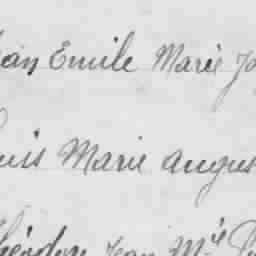 ean Emile Marie Jo
ouis Marie Augus
héodore Jean M^ie